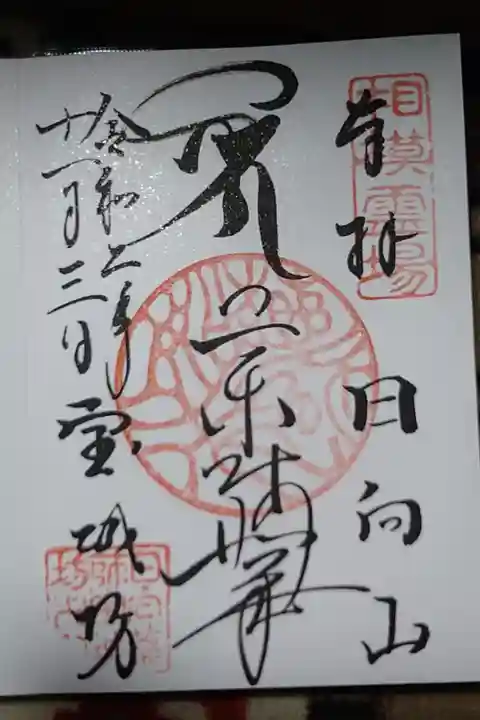 相模霊場
奉拝 日向山
薬師如来
令和二年
十一月三日 宝城坊